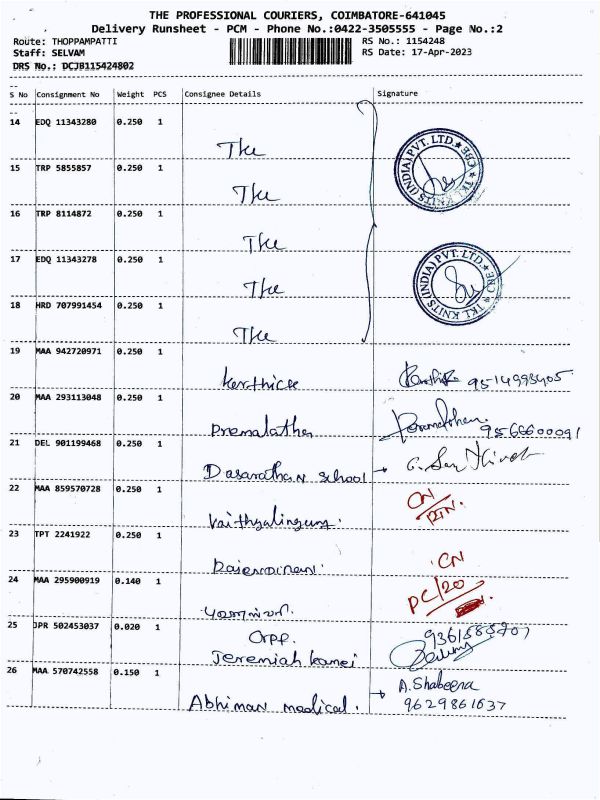 THE PROFESSIONAL COURIERS, COIMBATORE-641045
Delivery Runsheet - PCM - Phone No.:0422-3505555 - Page No.:2
Route: THOPPAMPATTI RS No.: 1154248
Staff: SELVAM RS Date: 17-Apr-2023
DRS No.: DCJB115424802
S No Consignment No Weight PCS Consignee Details Signature
14 EDQ 11343280 0.250 1
The
TKL KNITS (INDIA) PVT. LTD. ★ CBE ★
15 TRP 5855857 0.250 1
The
16 TRP 8114872 0.250 1
The
17 EDQ 11343278 0.250 1
The
TKL KNITS (INDIA) PVT. LTD. ★ CBE ★
18 HRD 707991454 0.250 1
The
19 MAA 942720971 0.250 1
Karthick 9514998405
20 MAA 293113048 0.250 1
Premalatha 9566600091
21 DEL 901199468 0.250 1
Dasarathan school
22 MAA 859570728 0.250 1
Vaithyalingam. CN
RTN.
23 TPT 2241922 0.250 1
CN
24 MAA 295900919 0.140 1
PC/20
25 JPR 502453037 0.020 1
Opp.
Jeremiah kanei
26 MAA 570742558 0.150 1
Abhiman medical. A. Shabeena
9629861637